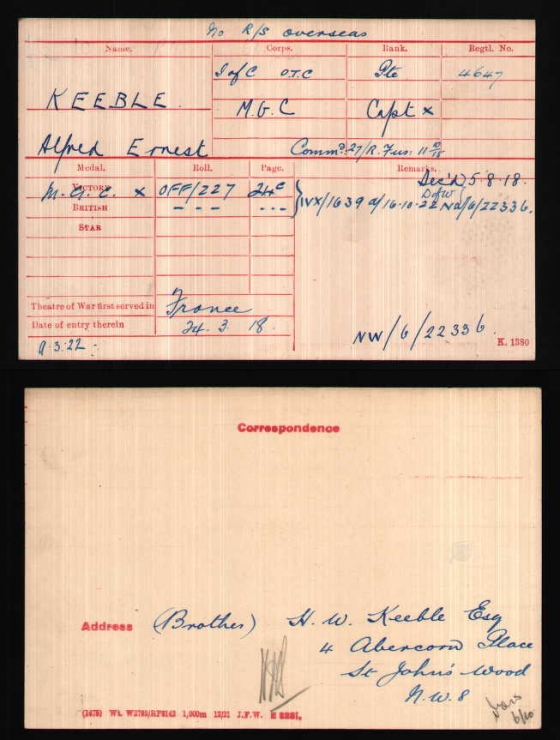 No R/S overseas
Name. Corps. Rank. Regtl. No.
I of C O.T.C Pte 4647
KEEBLE. M.G.C Capt x
Alfred Ernest Comm? 27/R. Fus. 11
Medal. Roll. Page. Remarks.
Dec'd 5.8.18.
VICTORY M.G.C. x OFF/227 24c D of W
BRITISH - - - - - - IVX/1639 d/16-10-22 NW/6/22336.
STAR
Theatre of War first served in France
Date of entry therein 24. 3. 18.
9.3.22. NW/6/22336. K. 1380
Correspondence
Address (Brother) H. W. Keeble Esq
4 Abercorn Place
St John's Wood
N.W.8
1,000m 12/21 J.F.W. E 3221.